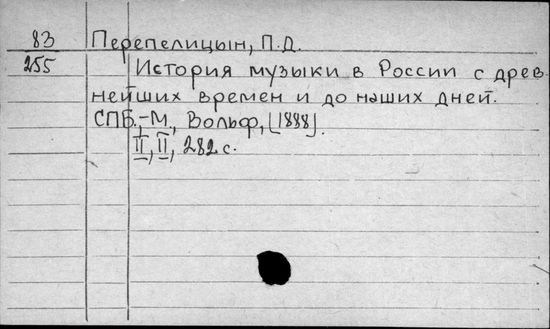 83 Перепелицын, П.Д.
255 История музыки в России с древ
нейших времен и до наших дней.
СПБ.-М., Вольф, [1888].
II, II, 282 с.